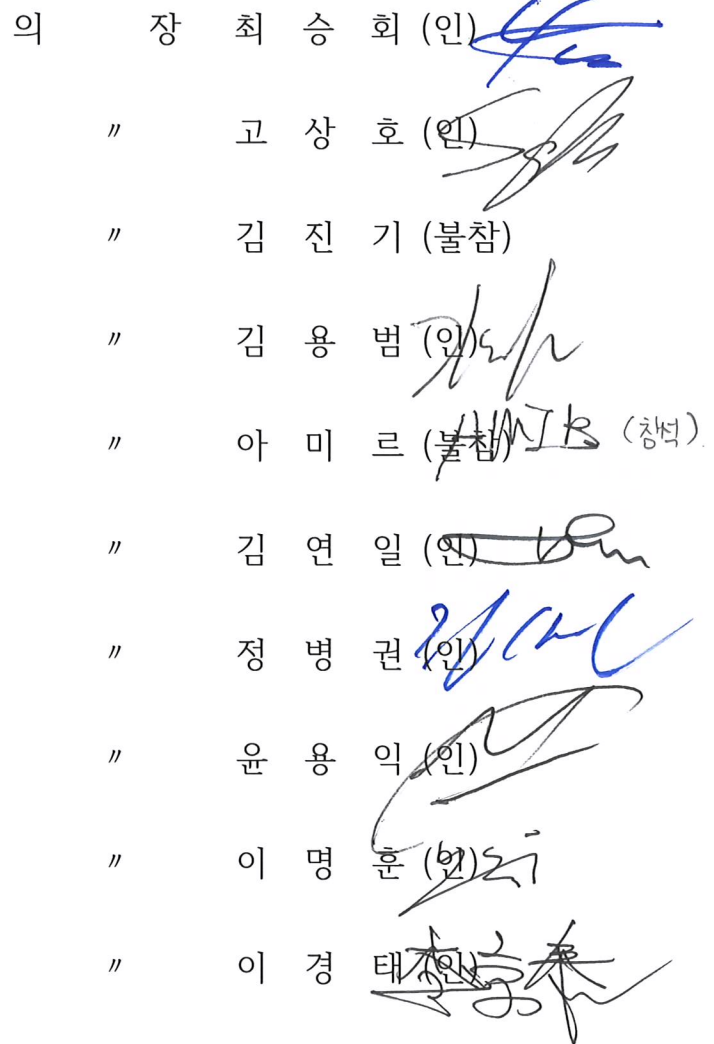 의 장 최 승 회 (인)
〃 고 상 호 (인)
〃 김 진 기 (불참)
〃 김 용 범 (인)
〃 아 미 르 (불참) AMIR (참석)
〃 김 연 일 (인)
〃 정 병 권 (인)
〃 윤 용 익 (인)
〃 이 명 훈 (인)
〃 이 경 태 (인)